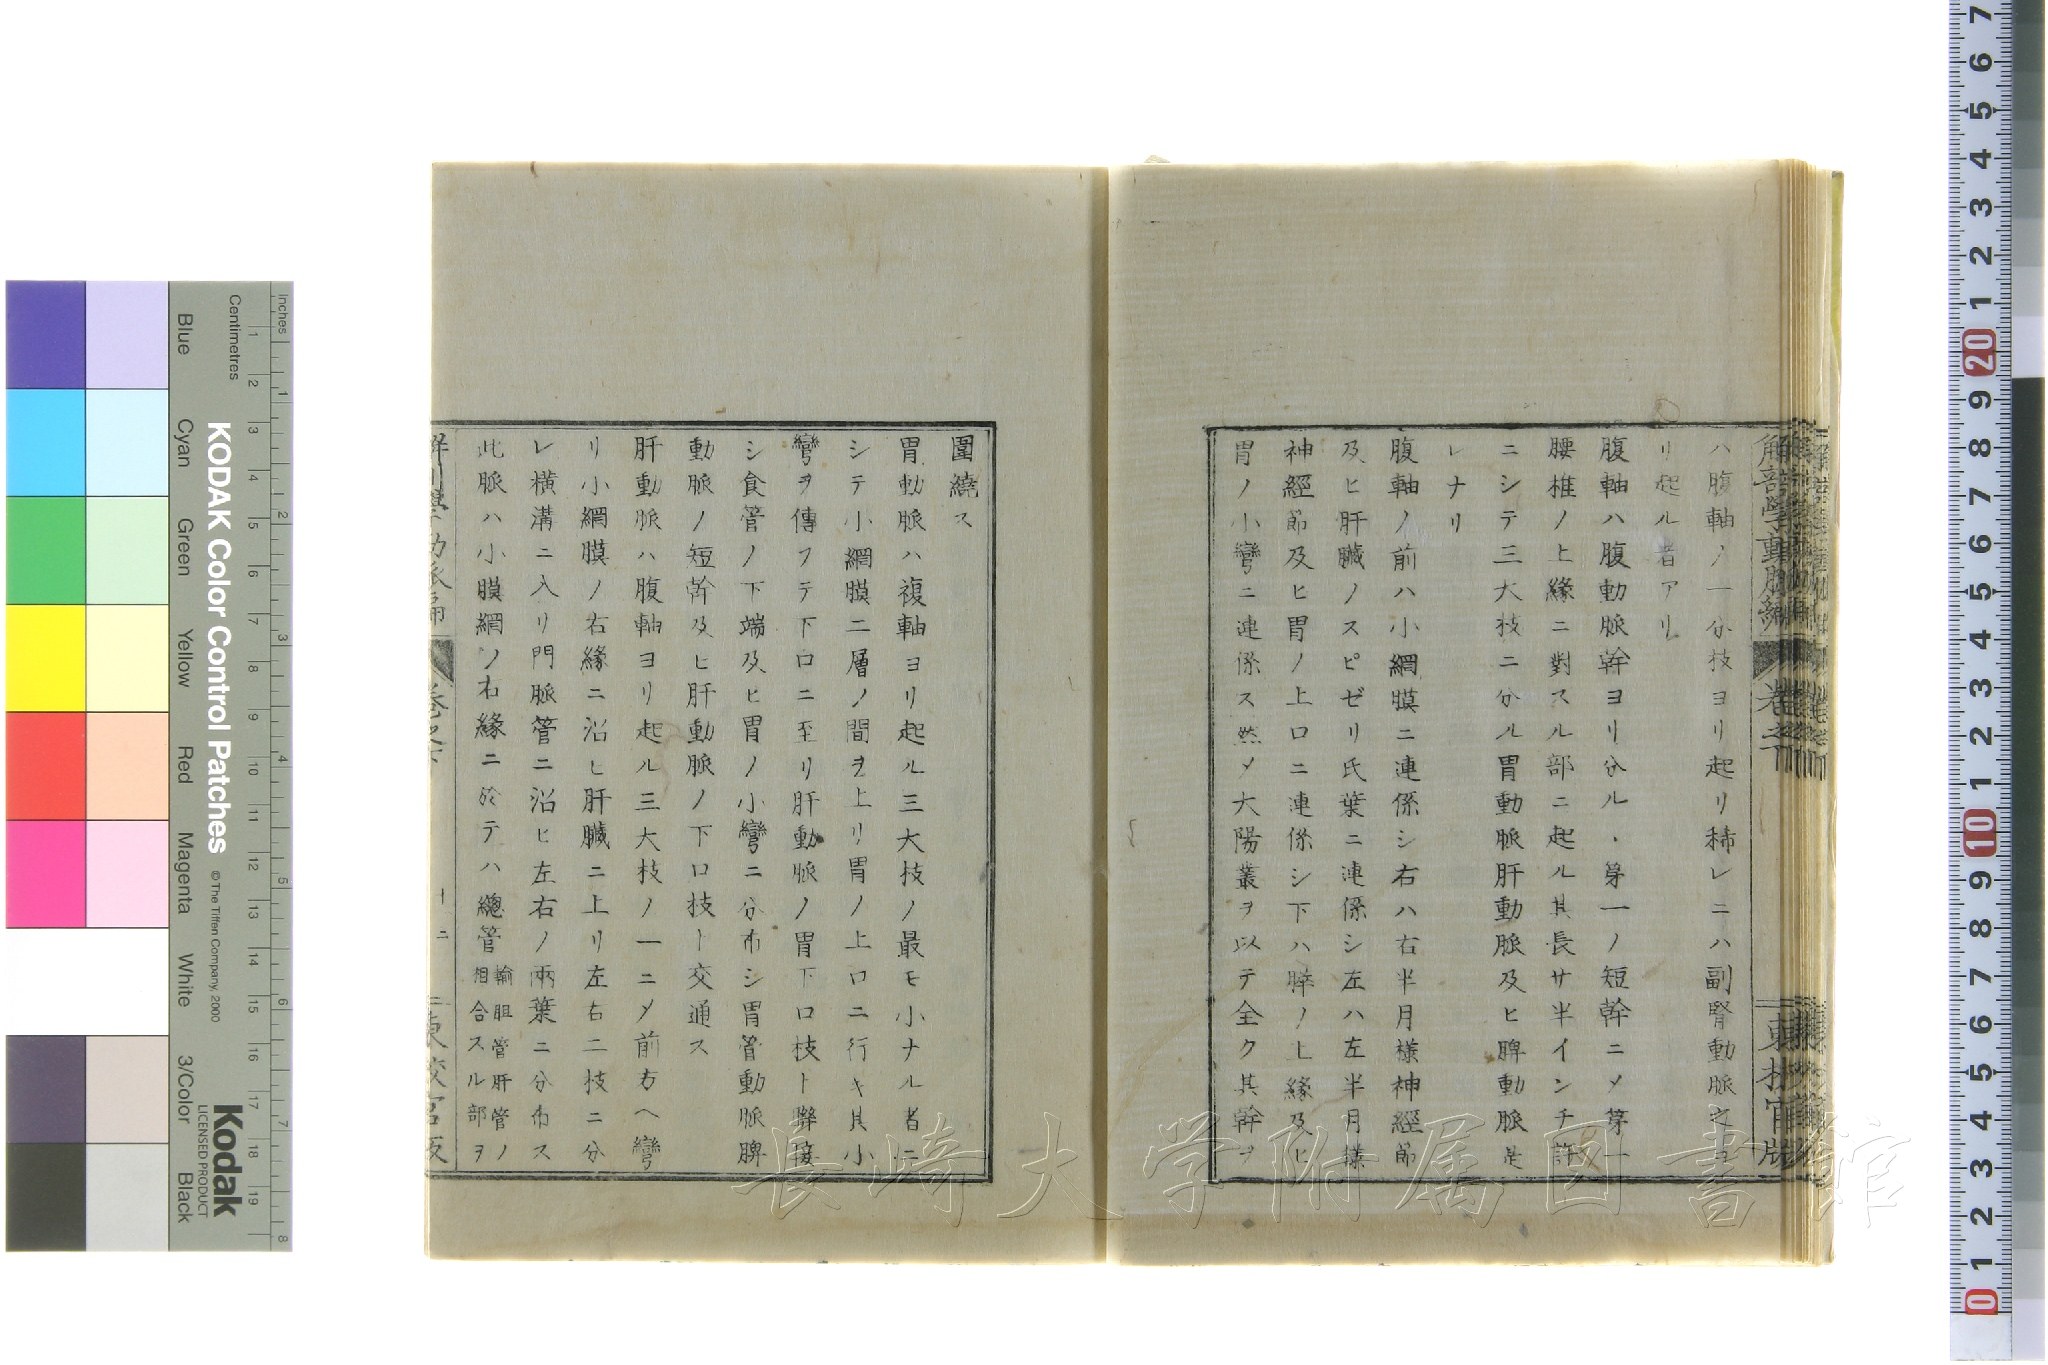 解剖學動脈編　卷之下　東校官版
ハ腹軸ノ一分枝ヨリ起リ稀レニハ副腎動脈之ヨ
リ起ル者アリ
腹軸ハ腹動脈幹ヨリ分ル・第一ノ短幹ニメ第一
腰椎ノ上緣ニ對スル部ニ起ル其長サ半インチ許
ニシテ三大枝ニ分ル胃動脈肝動脈及ヒ脾動脈是
レナリ
腹軸ノ前ハ小網膜ニ連係シ右ハ右半月樣神經節
及ヒ肝臓ノスピゼリ氏葉ニ連係シ左ハ左半月樣
神經節及ヒ胃ノ上口ニ連係シ下ハ膵ノ上緣及ヒ
胃ノ小彎ニ連係ス然メ大陽叢ヲ以テ全ク其幹ヲ
圍繞ス
胃動脈ハ複軸ヨリ起ル三大技ノ最モ小ナル者ニ
シテ小網膜二層ノ間ヲ上リ胃ノ上口ニ行キ其小
彎ヲ傳フテ下口ニ至リ肝動脈ノ胃下口枝ト聯接
シ食管ノ下端及ヒ胃ノ小彎ニ分布シ胃管動脈脾
動脈ノ短幹及ヒ肝動脈ノ下口技ト交通ス
肝動脈ハ腹軸ヨリ起ル三大枝ノ一ニメ前方ヘ彎
リ小網膜ノ右緣ニ沿ヒ肝臓ニ上リ左右二技ニ分
レ横溝ニ入リ門脈管ニ沿ヒ左右ノ兩葉ニ分布ス
此脈ハ小膜網ノ右緣ニ於テハ總管輸胆管肝管ノ
相合スル部ヲ
十二
長崎大学附属図書館
KODAK Color Control Patches
© The Tiffen Company, 2000
Kodak
LICENSED PRODUCT
Inches
Centimetres
Blue
Cyan
Green
Yellow
Red
Magenta
White
3/Color
Black